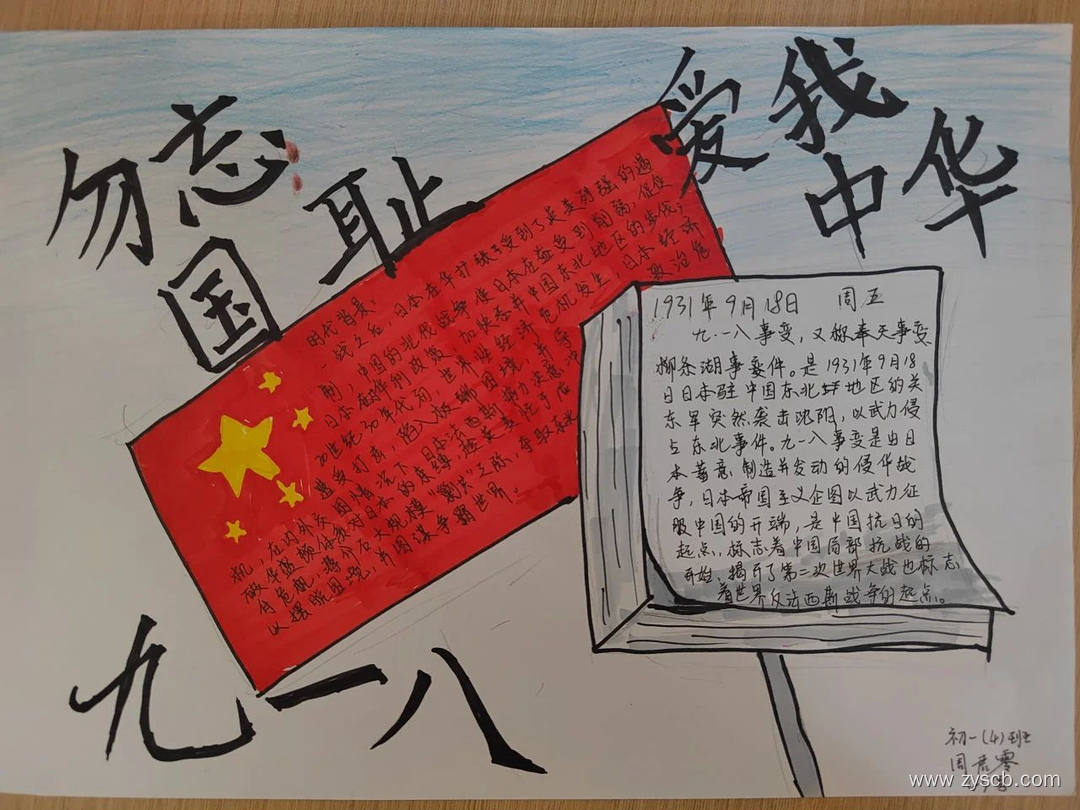 勿忘
国耻
爱我
中华
时代背景:
一战之后,日本在华扩张
受到了英美列强的遏
制,中国的北伐战争使日本
日本在
20世纪20年代
世界经济危机发生
日本经济
遭受打击,陷入极端困境,
政治危
机,在内外交困情况下,日本法西斯势力决意
破华盛顿体系对日本的束缚,趁英美
付危机,蒋介石大规模"剿共"之际,夺取东北
以摆脱困境,并图谋争霸世界。
1931年9月18日 周五
九·一八事变,又称奉天事变
柳条湖事变件。是1931年9月18
日日本驻中国东北地区的关
东军突然袭击沈阳,以武力侵
占东北事件。九一八事变是由日
本蓄意制造并发动的侵华战
争,日本帝国主义企图以武力征
服中国的开端,是中国抗日的
起点,标志着中国局部抗战的
开始,揭开了第二次世界大战也标志
着世界反法西斯战争的起点。
九一八
初一(4)班
www.zyscb.com